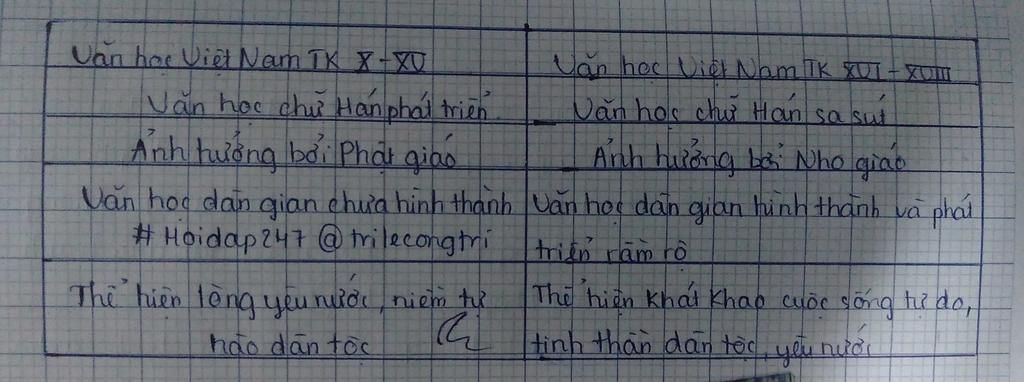 Văn học Việt Nam TK X - XV
Văn học Việt Nam TK XVI - XVIII
Văn học chữ Hán phát triển
Văn học chữ Hán sa sút
Ảnh hưởng bởi Phật giáo
Ảnh hưởng bởi Nho giáo
Văn học dân gian chưa hình thành
# Hoidap247 @ trilecongtri
Văn học dân gian hình thành và phát
triển rầm rộ
Thể hiện lòng yêu nước, niềm tự
hào dân tộc
Thể hiện khát khao cuộc sống tự do,
tinh thần dân tộc, yêu nước